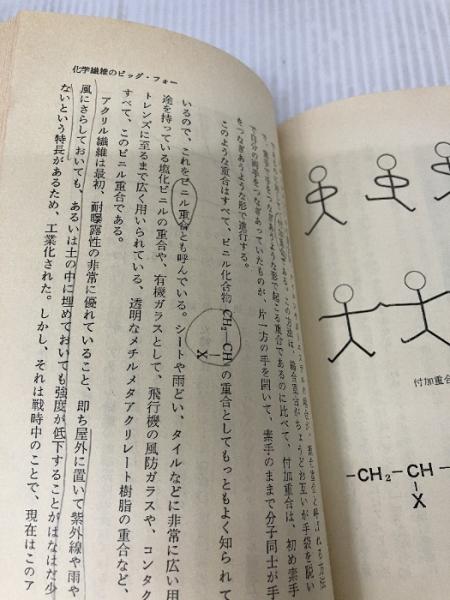 化学繊維のビッグ・フォー
で、素手で手をつなぎあうような形で起こる重合であるのに比べて、付加重合は、初め素手
で自分の両手をつなぎあっていたものが、片一方の手を開いて、素手のままで分子同士が手
をつなぎあうような形で進行する。
このような重合はすべて、ビニル化合物 CH₂―CH の重合としてもっともよく知られて
X
いるので、これをビニル重合とも呼んでいる。シートや雨どい、タイルなどに非常に広い用
途を持っている塩化ビニルの重合や、有機ガラスとして、飛行機の風防ガラスや、コンタク
トレンズに至るまで広く用いられている、透明なメチルメタアクリレート樹脂の重合など、
すべて、このビニル重合である。
アクリル繊維は最初、耐曝露性の非常に優れていること、即ち屋外に置いて紫外線や雨や
風にさらしておいても、あるいは土の中に埋めておいても強度が低下することがはなはだ少
ないという特長があるため、工業化された。しかし、それは戦時中のことで、現在はこのア
付加重合
―CH₂―CH―
X